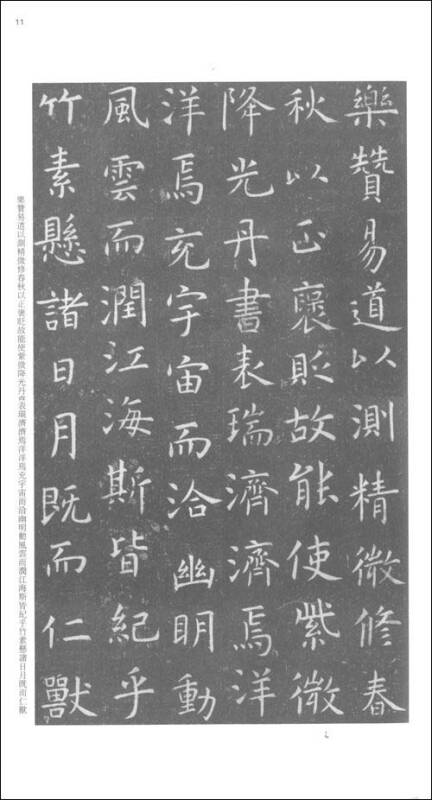 11
樂贊易道以測精微修春
秋以正襃貶故能使紫微
降光丹書表瑞濟濟焉洋
洋焉充宇宙而洽幽明動
風雲而潤江海斯皆紀乎
竹素懸諸日月既而仁獸
樂贊易道以測精微修春秋以正褒貶故能使紫微降光丹書表瑞濟濟焉洋洋焉充宇宙而洽幽明動風雲而潤江海斯皆紀乎竹素懸諸日月既而仁獸